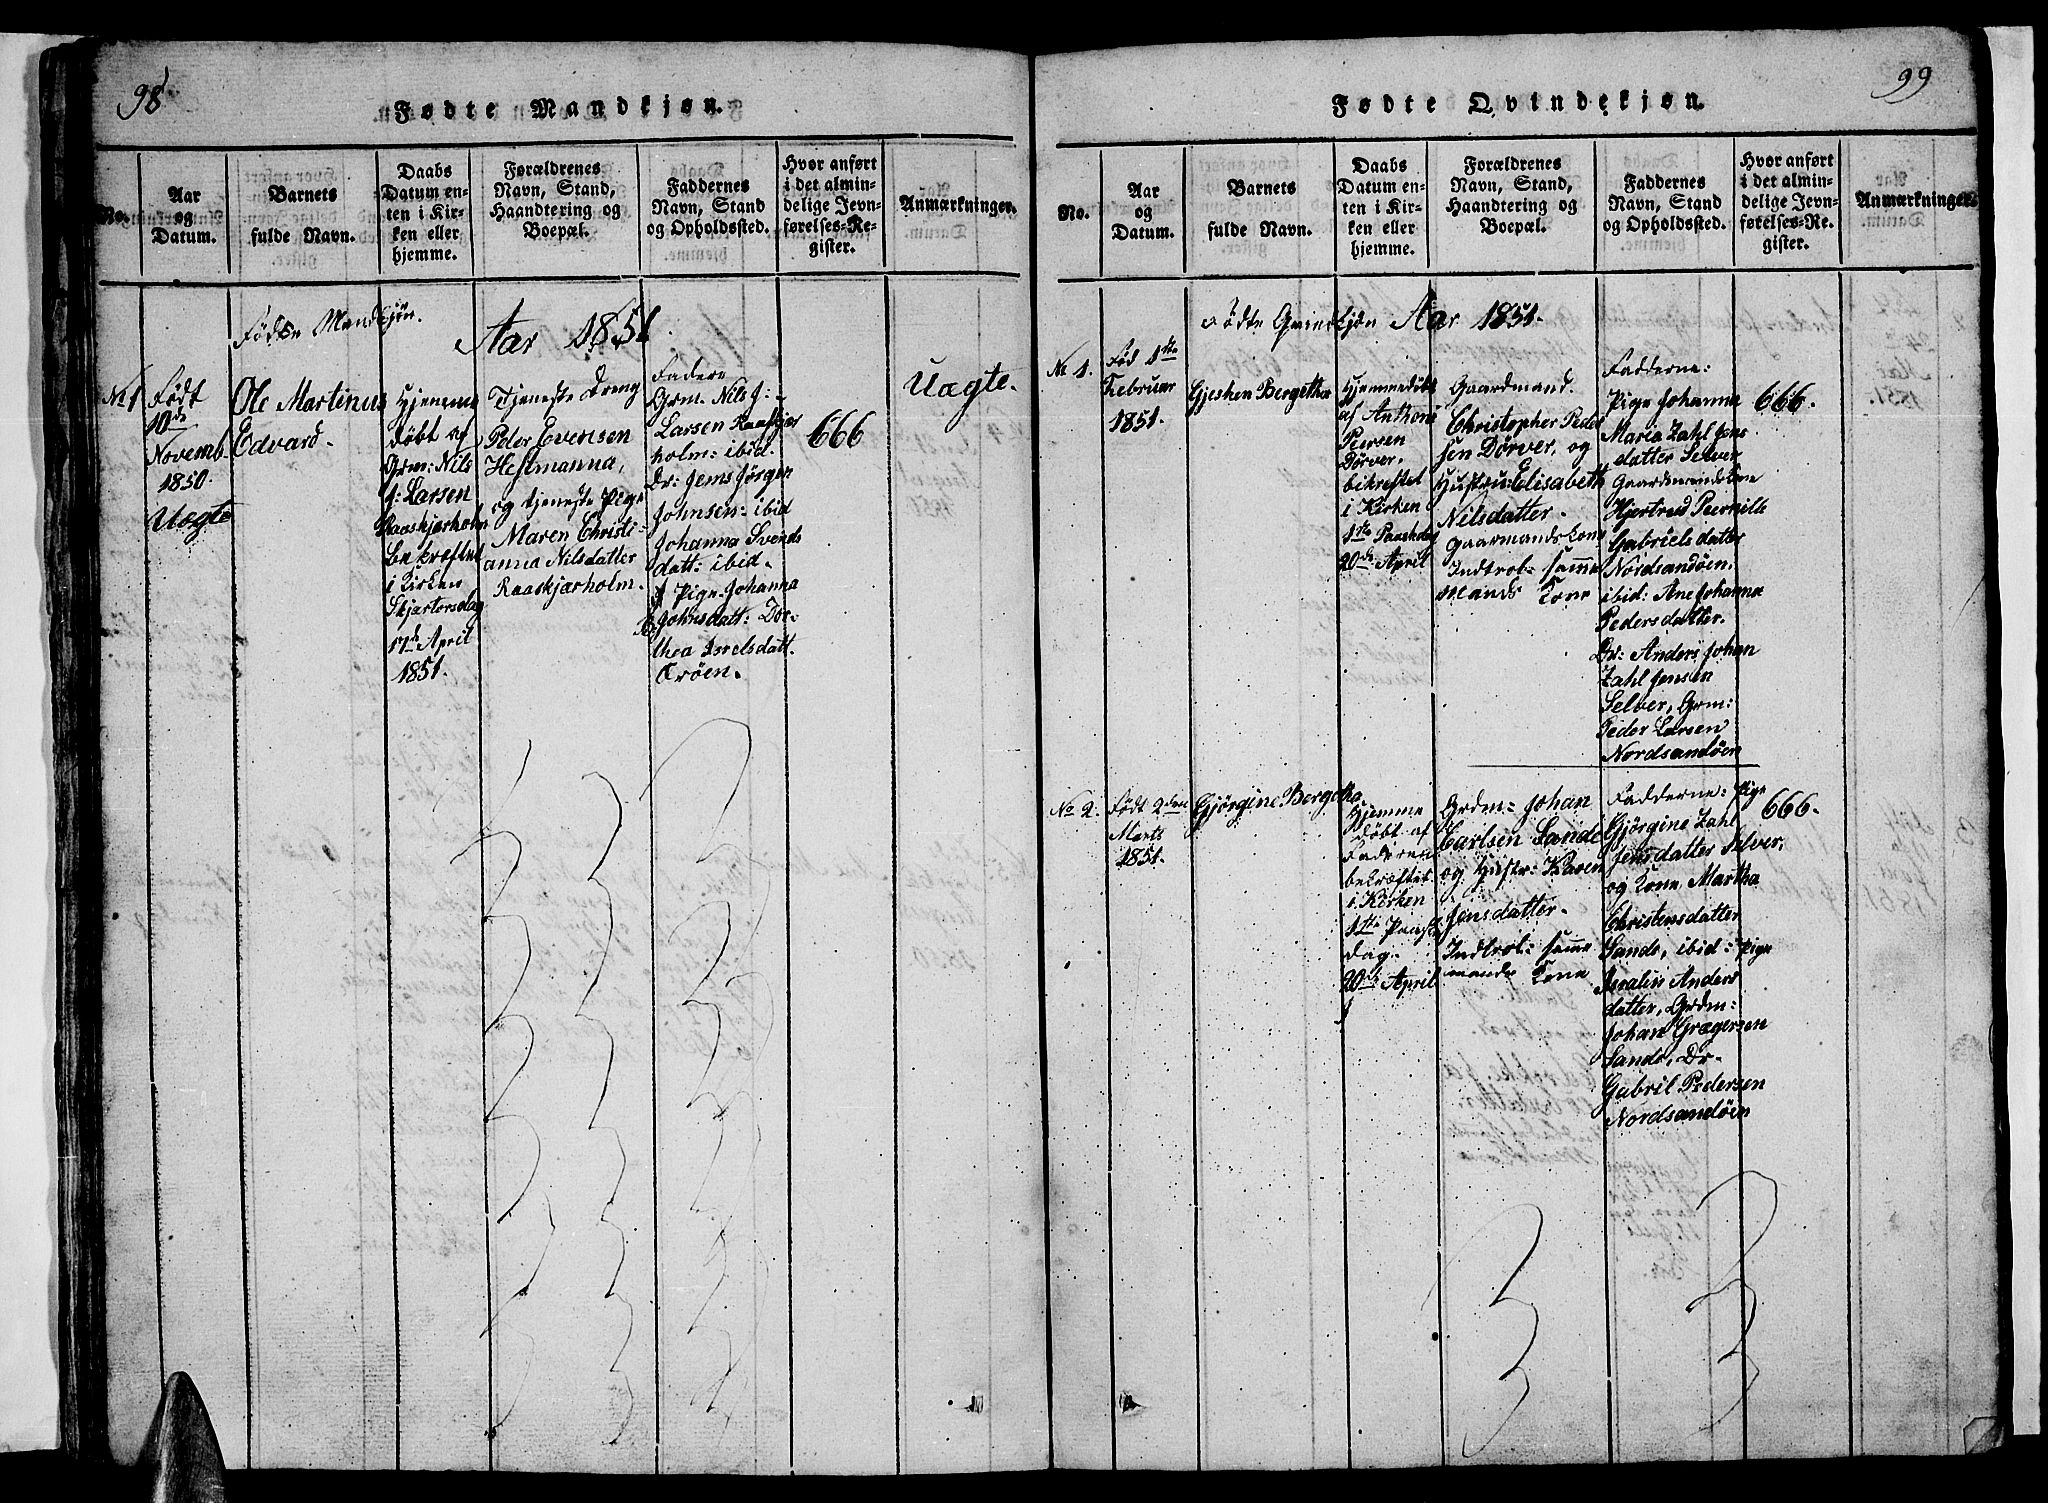 98
Fødte Mandkjøn.
No.
Aar
og
Datum.
Barnets
fulde Navn.
Daabs
Datum en-
ten i Kir-
ken eller
hjemme.
Forældrenes
Navn, Stand,
Haandtering og
Boepæl.
Faddernes
Navn, Stand
og Opholdssted.
Hvor anført
i det almin-
delige Jevn-
førelses-Re-
gister.
Anmærkninger.
Fødte Mandkjøn.
Aar 1851.
No 1
Født
10de
Novemb.
1850.
Uægte
Ole Martinus
Edvard.
Hjemme
døbt af
Grm: Nils
J: Larsen
Raaskjærholm
bekræftet
i Kirken
Skjærtorsdag
17de April
1851.
Tjeneste Dreng
Peder Evensen
Hestmanna,
og tjeneste Pige
Maren Christi-
anna Nilsdatter
Raaskjærholm.
Fadere
Grm. Nils J:
Larsen Raaskjær
holm: ibid.
Dr: Jens Jørgen
Johnsen: ibid
Johanna Svends
datt: ibid.
Pige Johanna
Johnsdatt: Dor-
thea Isrelsdatt.
666
Uægte.
99
Fødte Qvindekjøn.
No.
Aar
og
Datum.
Barnets
fulde Navn.
Daabs
Datum en-
ten i Kir-
ken eller
hjemme.
Forældrenes
Navn, Stand,
Haandtering og
Boepæl.
Faddernes
Navn, Stand
og Opholdssted.
Hvor anført
i det almin-
delige Jevn-
førelses-Re-
gister.
Anmærkninger.
Fødte Qvindekjøn Aar 1851.
No 1.
Fød 1ste
Februar
1851.
Gjeshen Bergetha
Hjemmedøbt
af Anthoni
Peersen
Dørver.
bekreftet
i Kirken
1ste Paaskedag
20de April
Gaardmand.
Christopher Peder
sen Dørver, og
Hustru: Elisabeth
Nilsdatter.
Gaarmandskone
Indtrol: samme
Mands Kone
Fadderne:
Pige Johanna
Maria Zahl Jens
datter Selver
Gaardmandskone
Hjertrud Peernille
Gabrielsdatter
Nordsandøen.
ibid: Ane Johanna
Pedersdatter.
Dr: Anders Johan
Zahl Jensen
Selver, Grm:
Peder Larsen
Nordsandøen
666.
No 2.
Født 2den
Marts
1851.
Gjørgine Bergetha
Hjemme
døbt af
Faderen
bekræftet
i Kirken
1ste Paaske
dag.
20de April
Grdm: Johan
Carlsen Sande
og Hustr: Karen
Jensdatter.
Indtrol: samme
mands Kone
Fadderne: Pige
Gjørgine Zahl
Jensdatter Selver,
og Kone Martha
Christensdatter
Sande, ibid: Pige
Anders
datter, Grdm:
Johan Grægersen
Sande, Dr.
Gabril Pedersen
Nordsandøen
666.